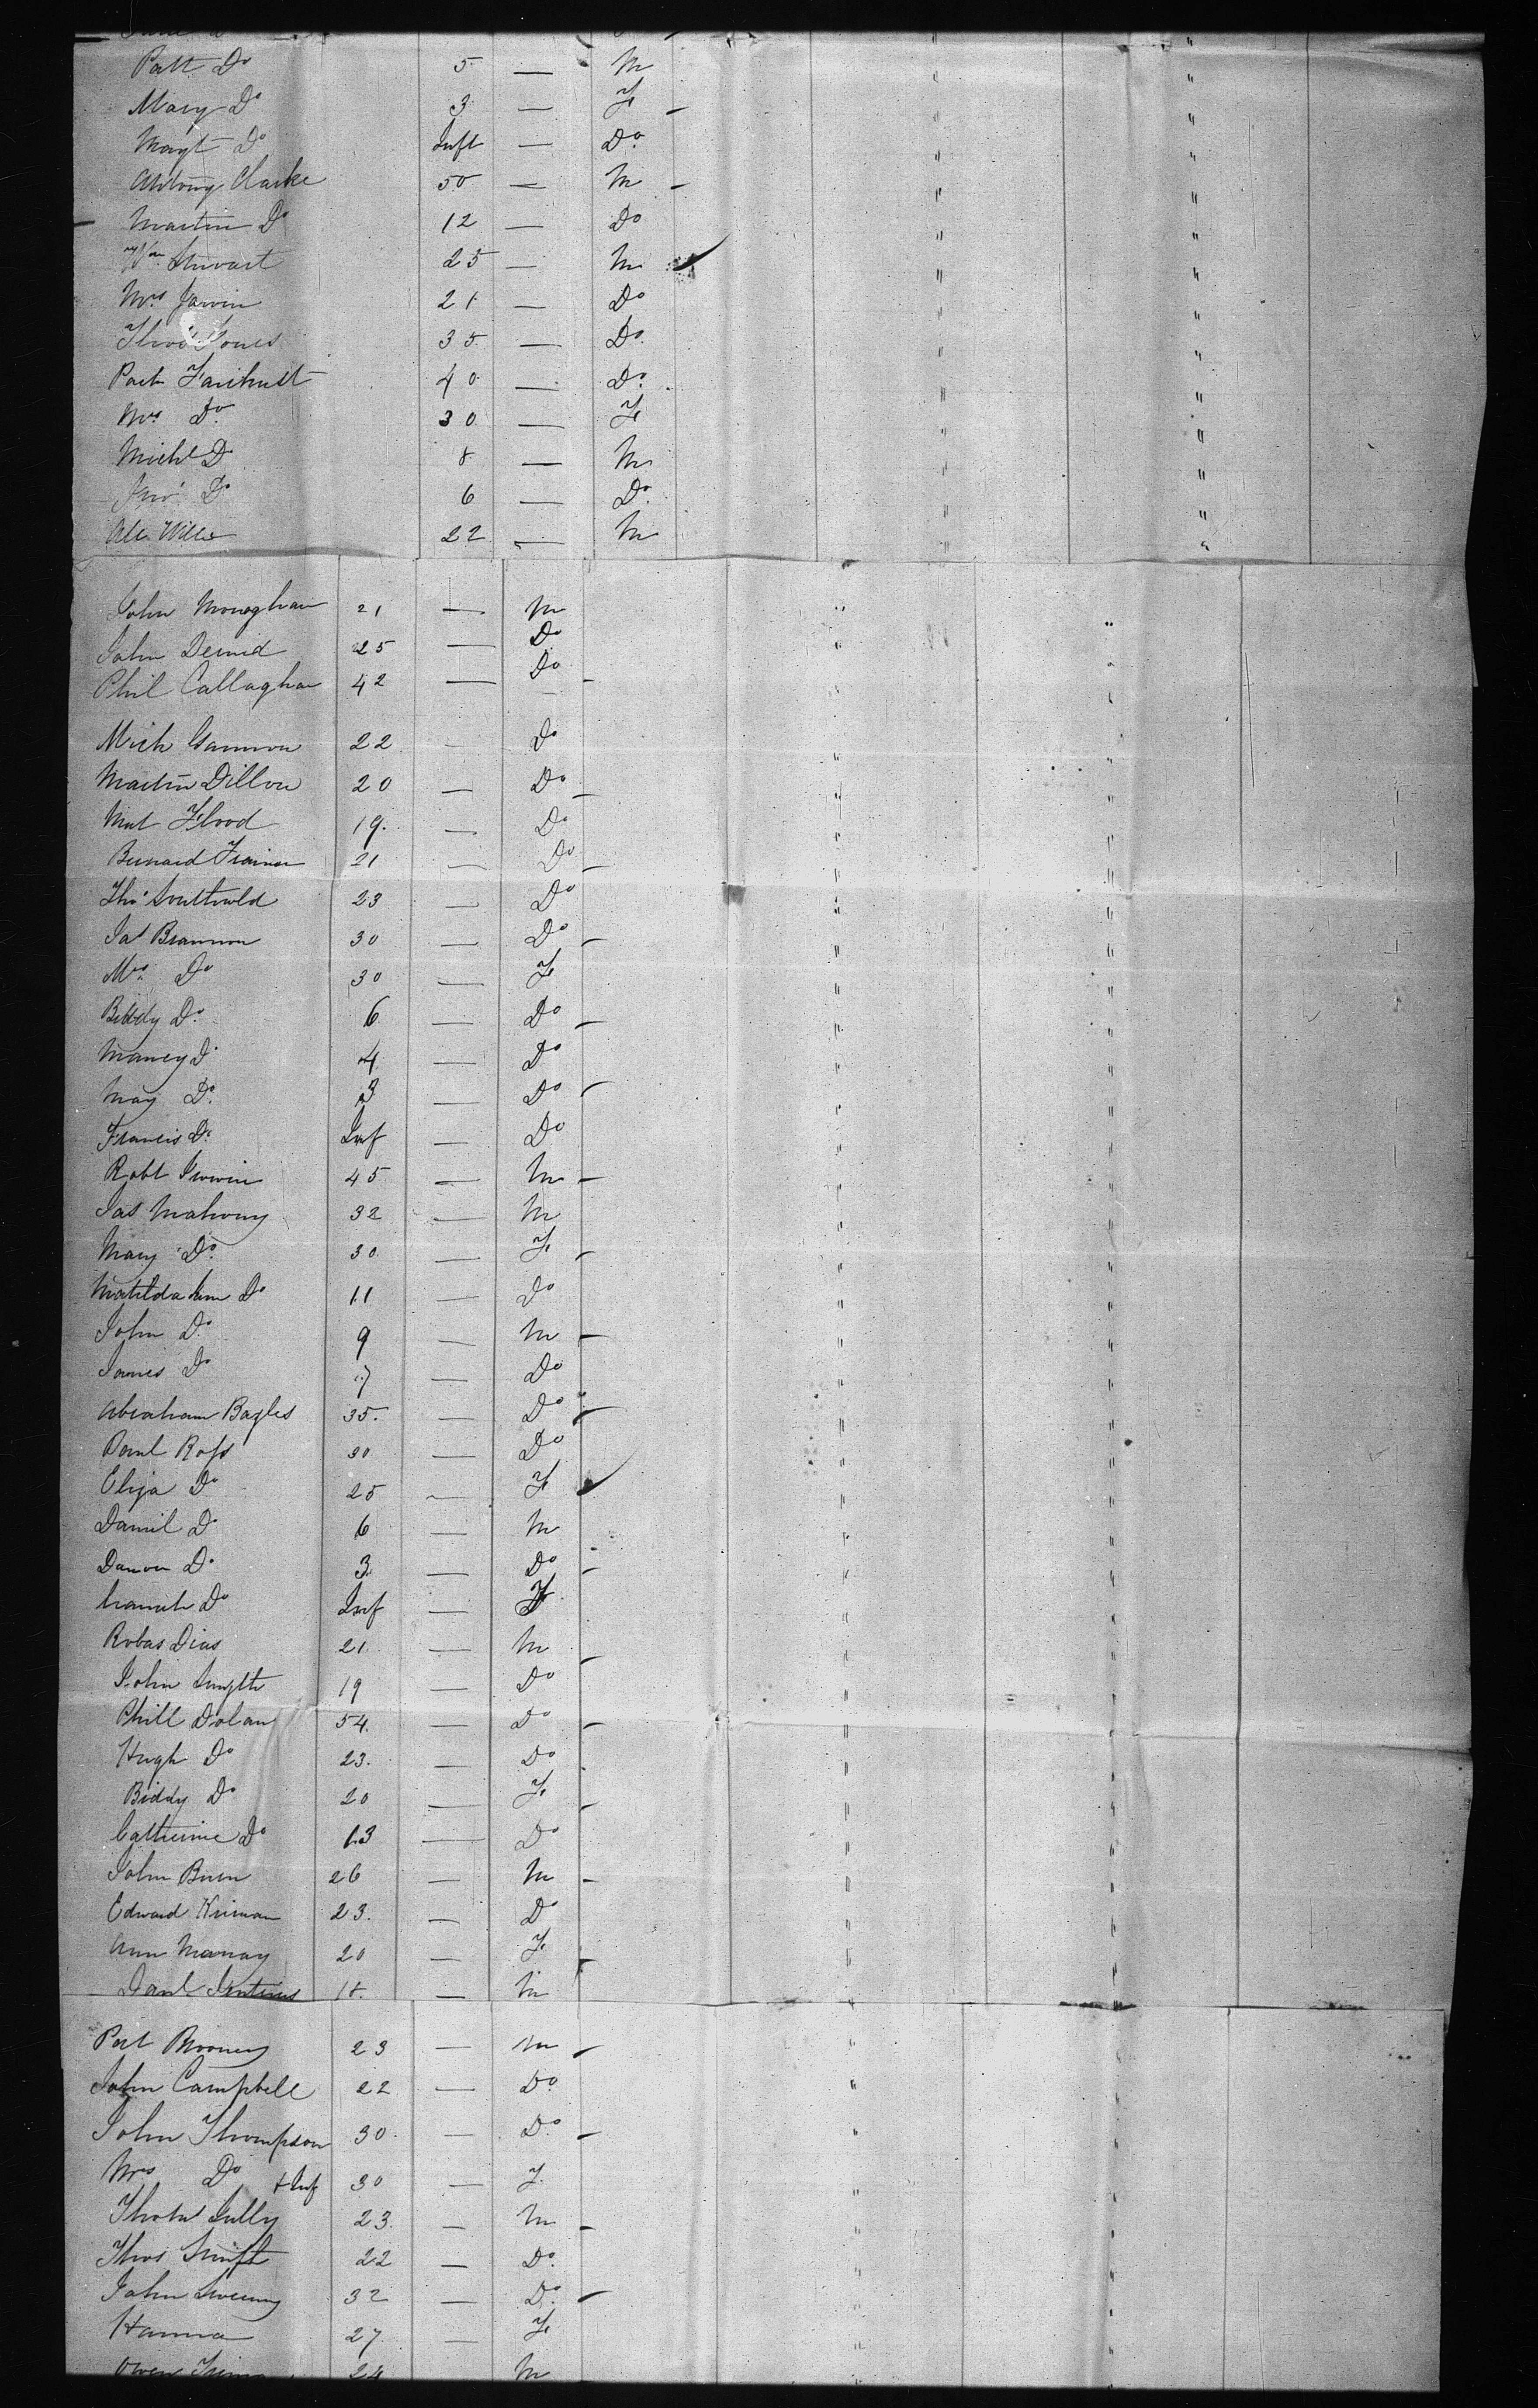 Patt Do 5 — M "
Mary Do 3 — F "
Magt Do Inft — Do "
Antony Clarke 50 — M "
Martin Do 12 — Do "
Wm Stewart 25 — M "
Mrs 21 — Do "
Thos Jones 35 — Do "
Patk Fairhust 40 — Do "
Mrs Do 30 — F "
Michl Do 8 — M "
Jno Do 6 — Do "
22 — M "
John Monoghan 21 — M "
John Dermid 25 — Do "
Phil Callaghan 42 — Do "
Mich Gannon 22 — Do "
Martin Dillon 20 — Do "
Mat Flood 19 — Do "
Bernard Trainor 21 — Do "
Thos Southwold 23 — Do "
Jas Brannon 30 — Do "
Mrs Do 30 — F "
Biddy Do 6 — Do "
Nancy Do 4 — Do "
May Do 3 — Do "
Francis Do Inf — Do "
Robt Irwin 45 — M "
Jas Mahony 32 — M "
Mary Do 30 — F "
Matilda Ann Do 11 — Do "
John Do 9 — M "
James Do 7 — Do "
Abraham Bayles 35 — Do "
Danl Ross 30 — Do "
Eliza Do 25 — F "
Daniel Do 6 — M "
Do 3 — Do "
Hannah Do Inf — F "
Robas Dias 21 — M "
John Smyth 19 — Do "
Phill Dolan 54 — Do "
Hugh Do 23 — Do "
Biddy Do 20 — F "
Catherine Do 13 — Do "
John 26 — M "
Edward Kiernan 23 — Do "
Ann 20 — F "
Danl 18 — M "
Pat Rooney 23 — M "
John Campbell 22 — Do "
John Thompson 30 — Do "
Mrs Do + Inf 30 — F "
Thos Tully 23 — M "
Thos Swift 22 — Do "
John Sweeny 32 — Do "
Hanna 27 — F "
Owen 24 M "